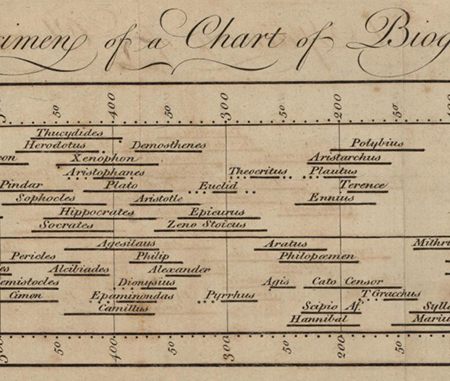 cimen of a Chart of Biog
50 400 50 300 50 200 50
Thucydides
Herodotus Demosthenes Polybius
Xenophon Aristarchus
Aristophanes Theocritus Plautus
Pindar Plato Euclid Terence
Sophocles Aristotle Ennius
Hippocrates Epicurus
Socrates Zeno Stoicus
Agesilaus Aratus Mithr
Pericles Philip Philopœmen
Alcibiades Alexander
emistocles Dionysius Agis Cato Censor
Cimon Epaminondas Pyrrhus T Gracchus
Camillus Scipio Af. Sylla
Hannibal Marius
50 400 50 300 50 200 50